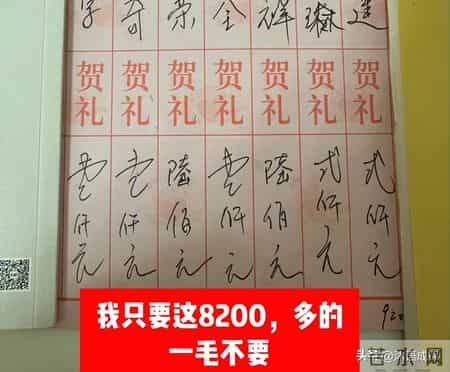 奇 荣 全 祥 琳 莲
贺礼 贺礼 贺礼 贺礼 贺礼 贺礼 贺礼
壹仟元 壹仟元 陆佰元 壹仟元 陆佰元 弍仟元 弍仟元
920
我只要这8200，多的
一毛不要